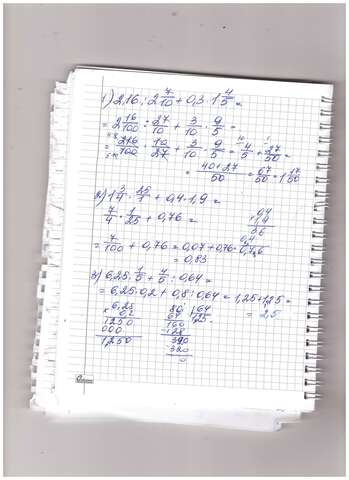 1) 2,16 : 2 7/10 + 0,3 · 1 4/5 =
= 2 16/100 : 27/10 + 3/10 · 9/5 =
= 216/100 · 10/27 + 3/10 · 9/5 = 4/5 + 27/50 =
= 40+27/50 = 67/50 = 1 17/50
2) 1 3/4 · 25/1 + 0,4 · 1,9 =
7/4 · 1/25 + 0,76 =
= 7/100 + 0,76 = 0,07 + 0,76 =
= 0,83
0,4
× 1,9
36
0,4
0,7,6
3) 6,25 · 1/5 + 4/5 : 0,64 =
= 6,25 · 0,2 + 0,8 : 0,64 = 1,25 + 1,25 =
= 2,5
6,25
× 0,2
1250
000
1,250
80 | 64
64 1,25
160
-128
320
-320
0